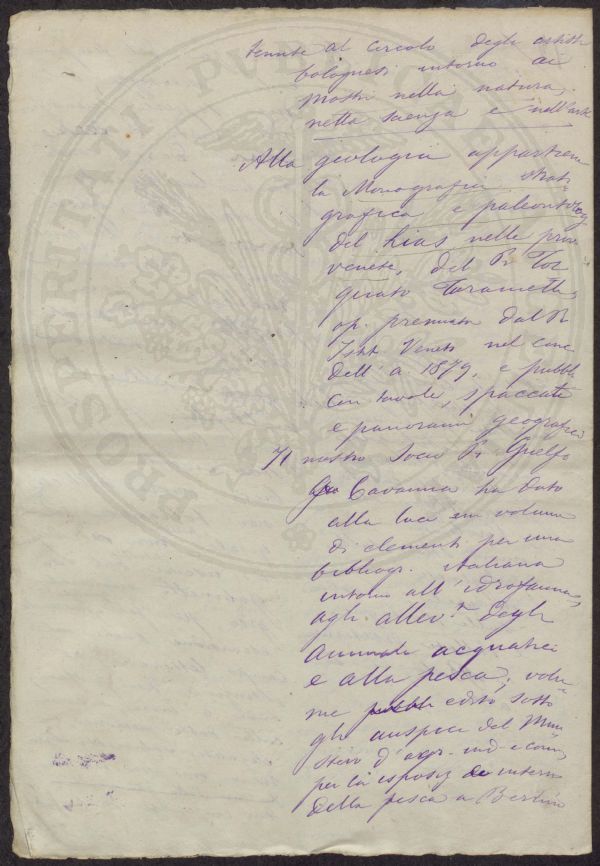 tenute al circolo degli artisti
bolognesi intorno ai
mostri nella natura,
nella scienza e nell'arte
Alla geologia appartiene
la Monografia strati
grafica e paleontolog
del Lias nelle prov
venete, del Pr Tor
quato Taramelli,
op. premiata dal R
Istit Veneto nel conc
dell'a. 1879, e pubbl
con tavole, spaccati
e panorami geografici
Il nostro Socio Pr Guelfo
Cavanna ha dato
alla luce un volume
di elementi per una
bibliogr. italiana
intorno all'idrofauna,
agli allev.ti degli
animali acquatici
e alla pesca; volu
me pubbl edito sotto
gli auspici del Mini
stero d'agr. ind. e com,
per la esposiz intern
della pesca a Berlino
PROSPERITATI PUBLICAE